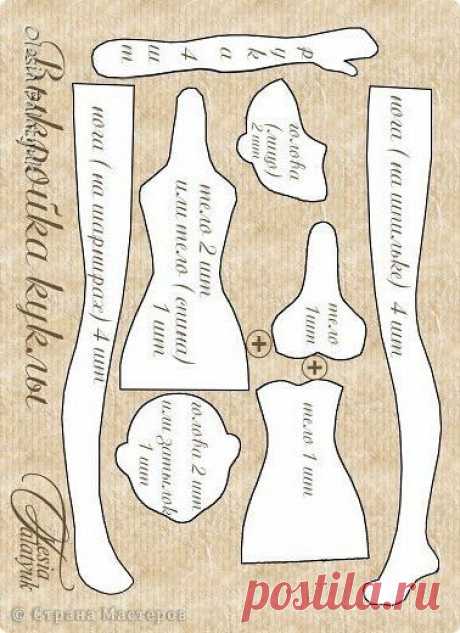 Выкройка куклы
Olesia Talatyuk
рука
4
шт
нога ( на шарнирах) 4 шт
тело 2 шт
или тело (спина)
1 шт
голова
(лицо)
2 шт
нога ( на шпильке) 4 шт
тело
1шт
+
+
голова 2 шт
или затылок
1 шт
тело 1 шт
© Страна Мастеров
postila.ru